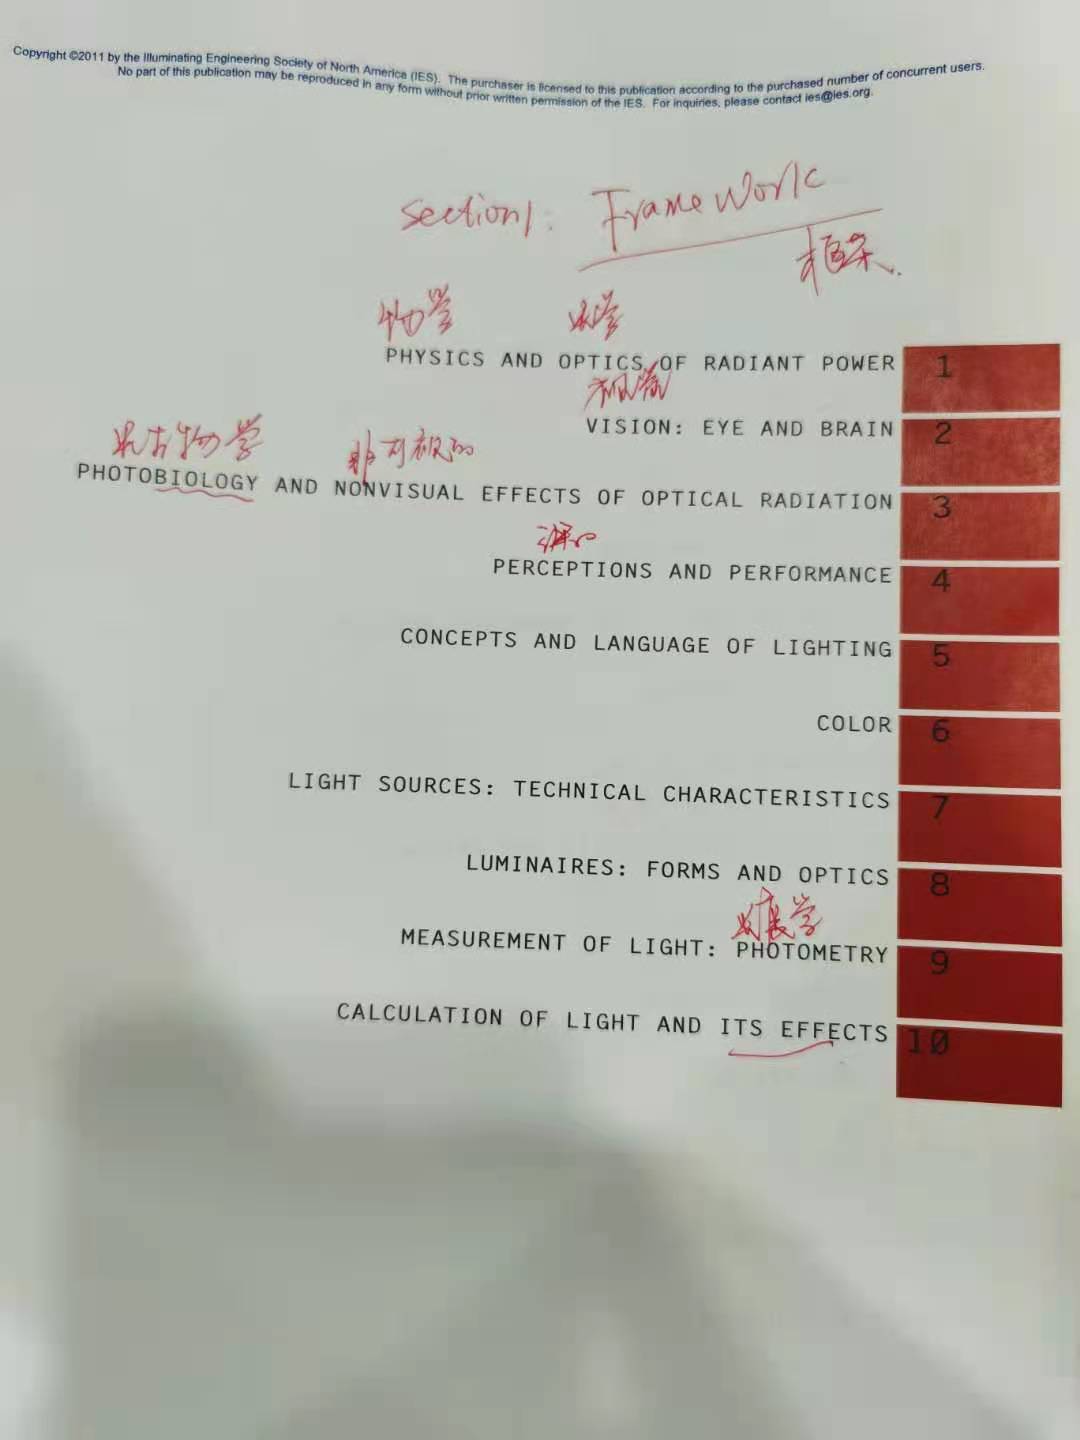 Copyright ©2011 by the Illuminating Engineering Society of North America (IES). The purchaser is licensed to this publication according to the purchased number of concurrent users.
No part of this publication may be reproduced in any form without prior written permission of the IES. For inquiries, please contact ies@ies.org.
Section1: FrameWork
框架.
物学 光学
PHYSICS AND OPTICS OF RADIANT POWER 1
视觉
VISION: EYE AND BRAIN 2
光生物学 非可视的
PHOTOBIOLOGY AND NONVISUAL EFFECTS OF OPTICAL RADIATION 3
PERCEPTIONS AND PERFORMANCE 4
CONCEPTS AND LANGUAGE OF LIGHTING 5
COLOR 6
LIGHT SOURCES: TECHNICAL CHARACTERISTICS 7
LUMINAIRES: FORMS AND OPTICS 8
光度学
MEASUREMENT OF LIGHT: PHOTOMETRY 9
CALCULATION OF LIGHT AND ITS EFFECTS 10